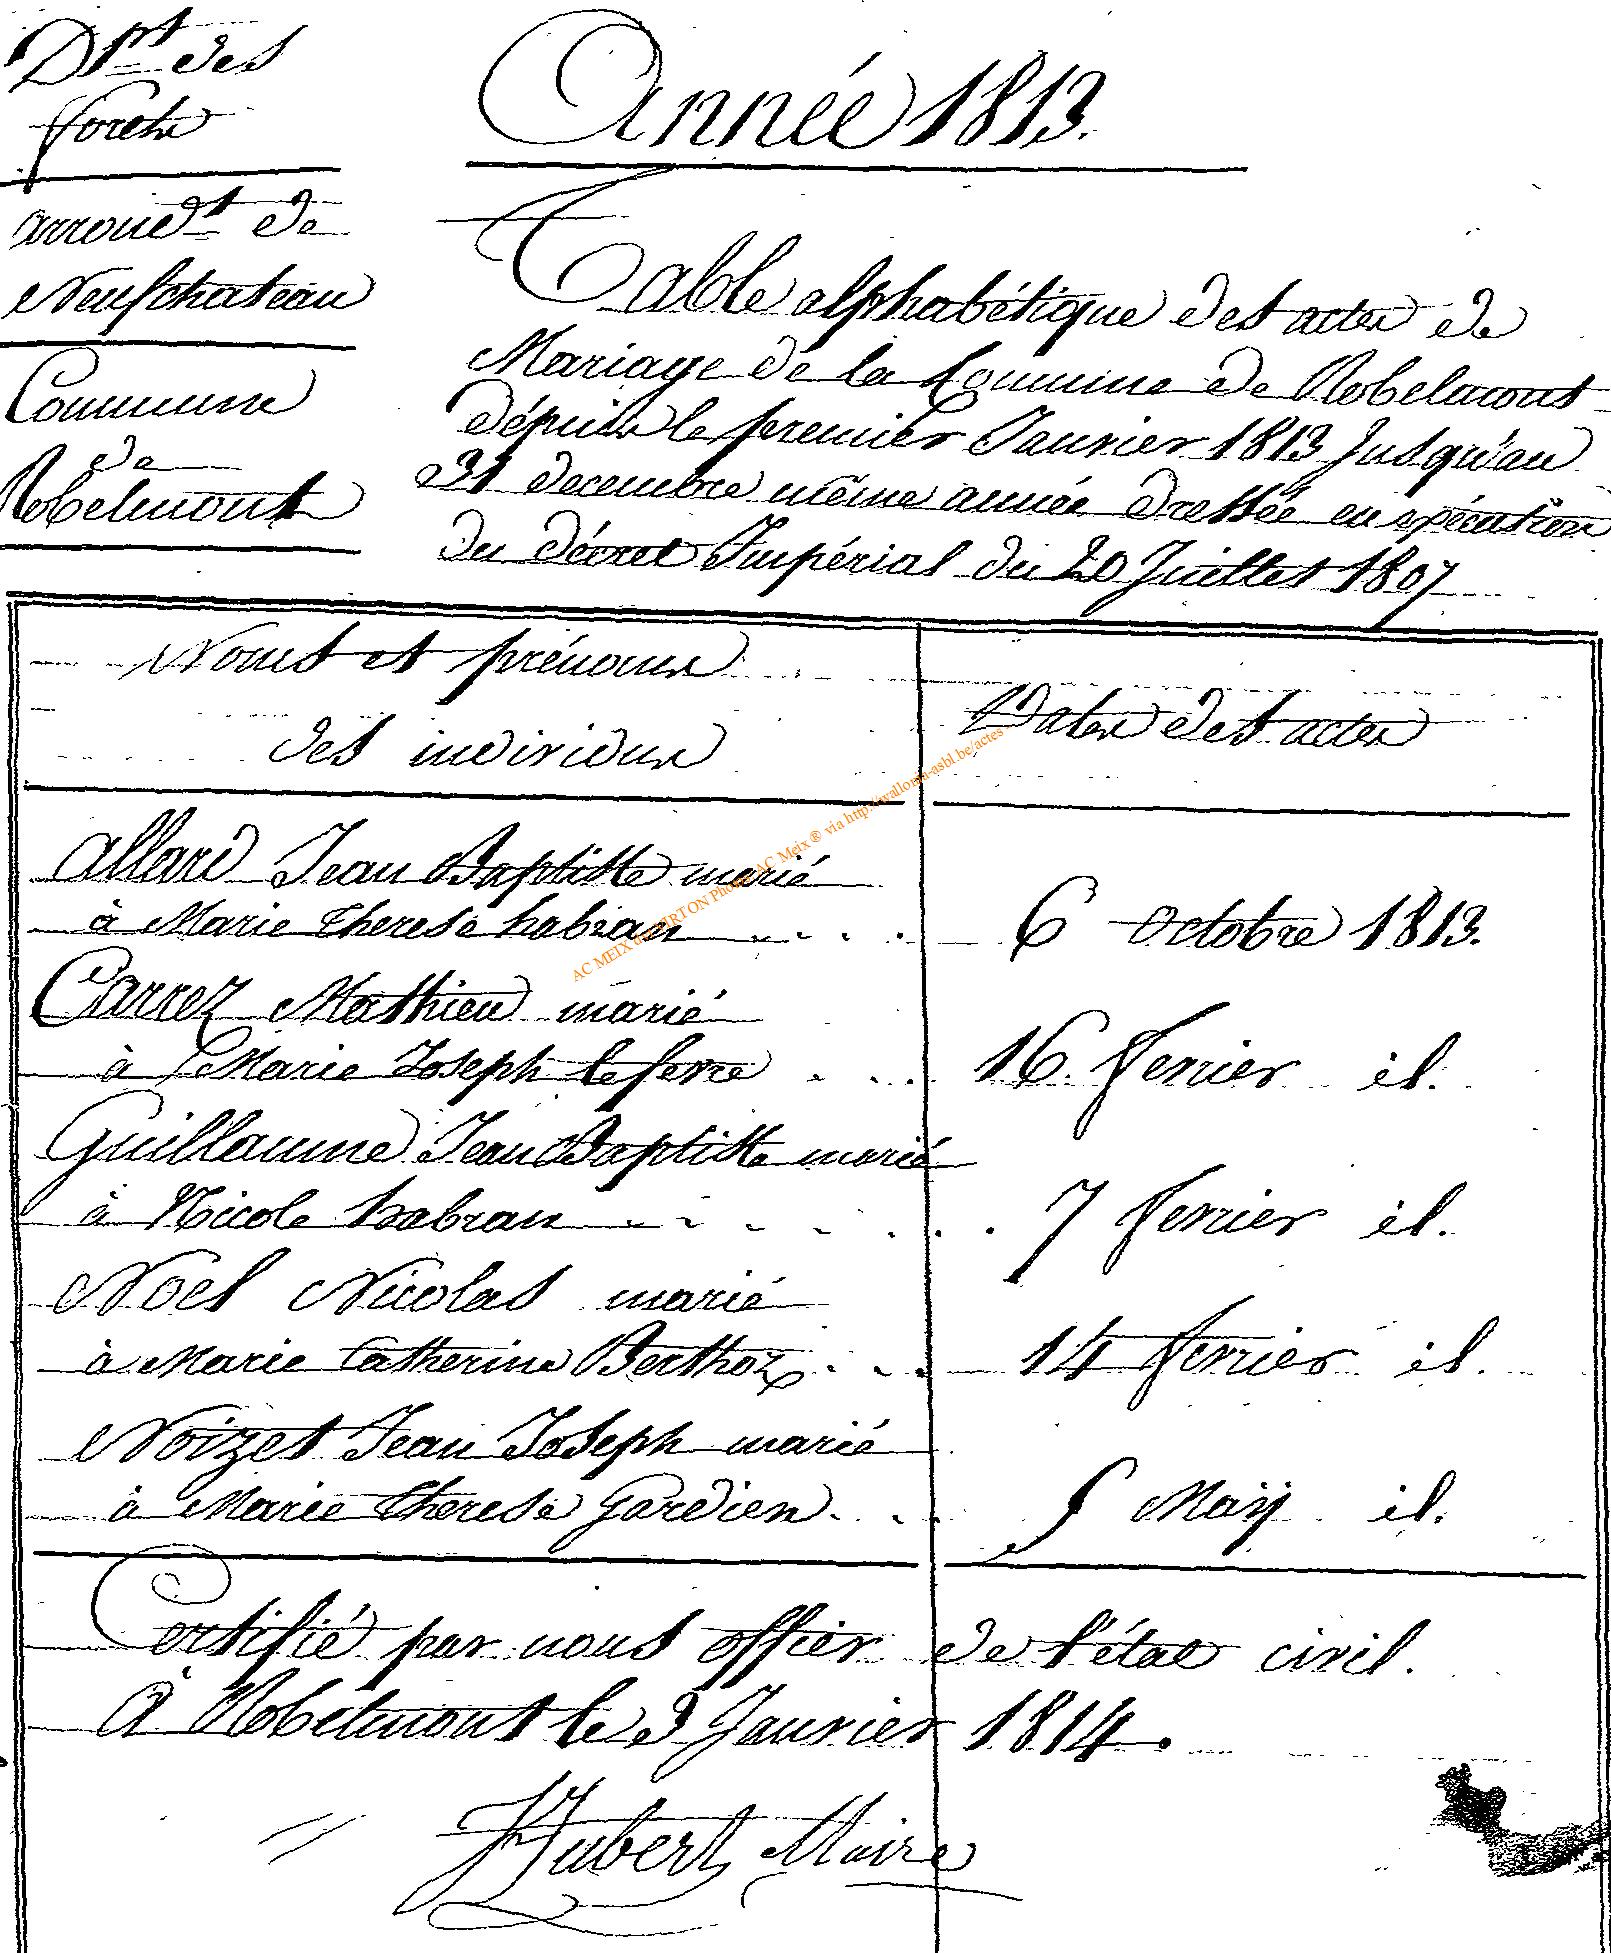 Dpt des
forets
arrondt de
Neufchateau
Commune
de
Robelmont
Année 1813.
Table alphabétique des actes de
Mariage de la Commune de Robelmont
dépuis le premier Janvier 1813 Jusqu'au
31 decembre même année dressée en exécution
du décret Impérial du 20 Juillet 1807
Noms et prénoms
des individus
Dates des actes
Allard Jean Baptiste marié
à Marie Therese habran
6 octobre 1813.
Carrez Mathieu marié
à Marie Joseph lefevre
16 fevrier id.
Guillaume Jean Baptiste marié
à Nicole habran
7 fevrier id.
Noel Nicolas marié
à Marie Catherine Berthoz
14 fevrier id.
Noizet Jean Joseph marié
à Marie Therese Gardien
5 Maÿ id.
Certifié par nous officier de l'état civil.
A Robelmont le 3 Janvier 1814.
Hubert Maire
AC MEIX dt VIRTON Photo AC Meix ® via http://wallonia-asbl.be/actes